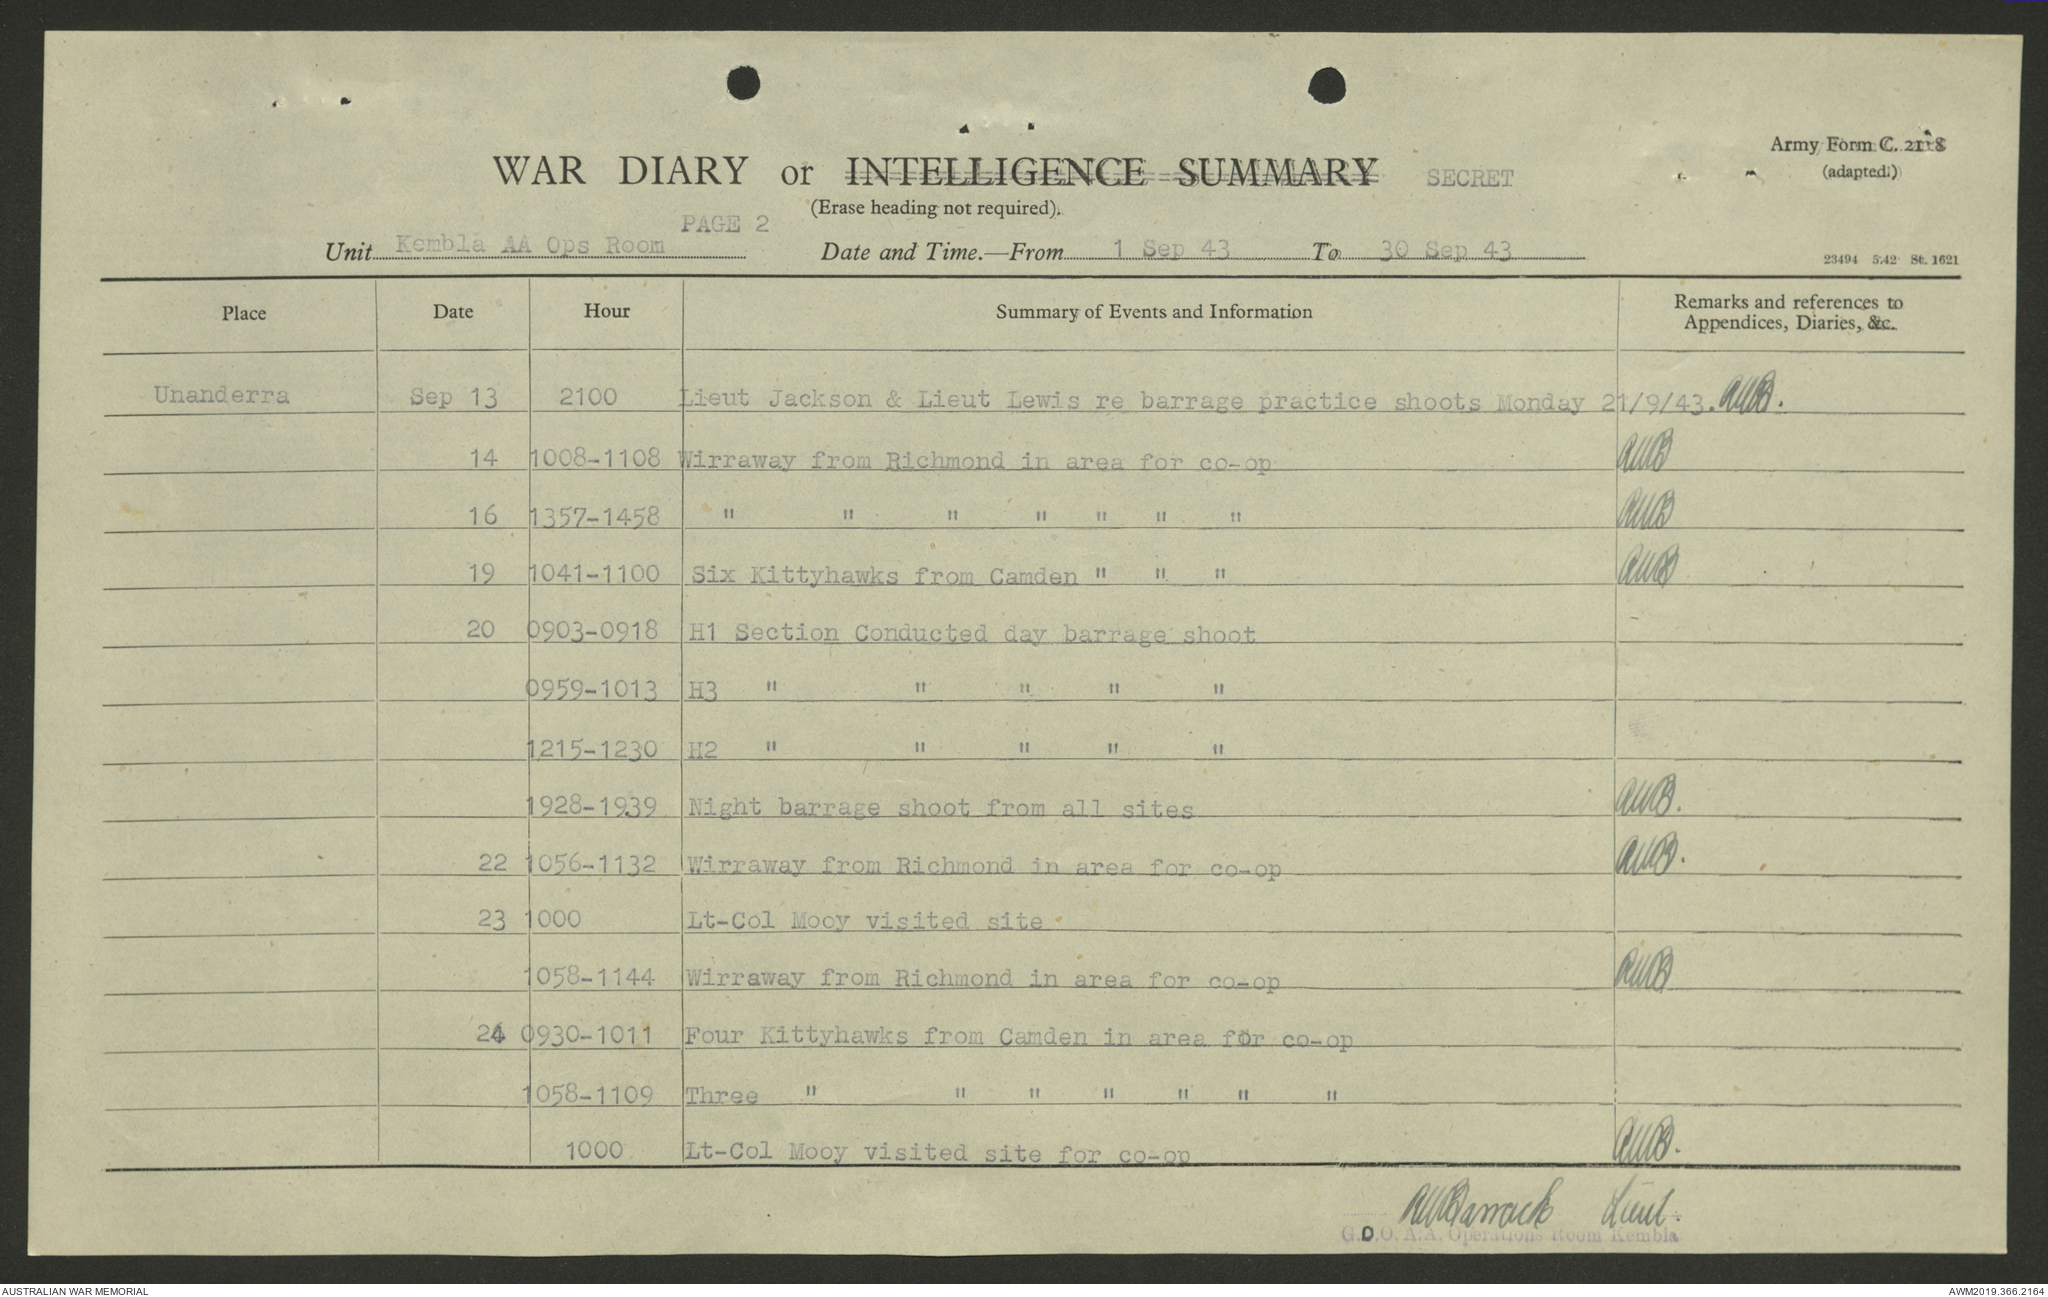 Army Form C. 2118
(adapted.)
WAR DIARY or INTELLIGENCE SUMMARY SECRET
(Erase heading not required).
PAGE 2
Unit Kembla AA Ops Room Date and Time.—From 1 Sep 43 To 30 Sep 43
23494 5.42 St. 1621
Place Date Hour Summary of Events and Information Remarks and references to Appendices, Diaries, &c.
Unanderra Sep 13 2100 Lieut Jackson & Lieut Lewis re barrage practice shoots Monday 21/9/43. RWB.
14 1008-1108 Wirraway from Richmond in area for co-op RWB
16 1357-1458 " " " " " " " RWB
19 1041-1100 Six Kittyhawks from Camden " " " RWB
20 0903-0918 H1 Section Conducted day barrage shoot
0959-1013 H3 " " " " "
1215-1230 H2 " " " " "
1928-1939 Night barrage shoot from all sites RWB.
22 1056-1132 Wirraway from Richmond in area for co-op RWB.
23 1000 Lt-Col Mooy visited site
1058-1144 Wirraway from Richmond in area for co-op RWB
24 0930-1011 Four Kittyhawks from Camden in area for co-op
1058-1109 Three " " " " " " "
1000 Lt-Col Mooy visited site for co-op RWB.
RWBarrack Lieut.
G.D.O. A.A. Operations Room Kembla
AUSTRALIAN WAR MEMORIAL AWM2019.366.2164